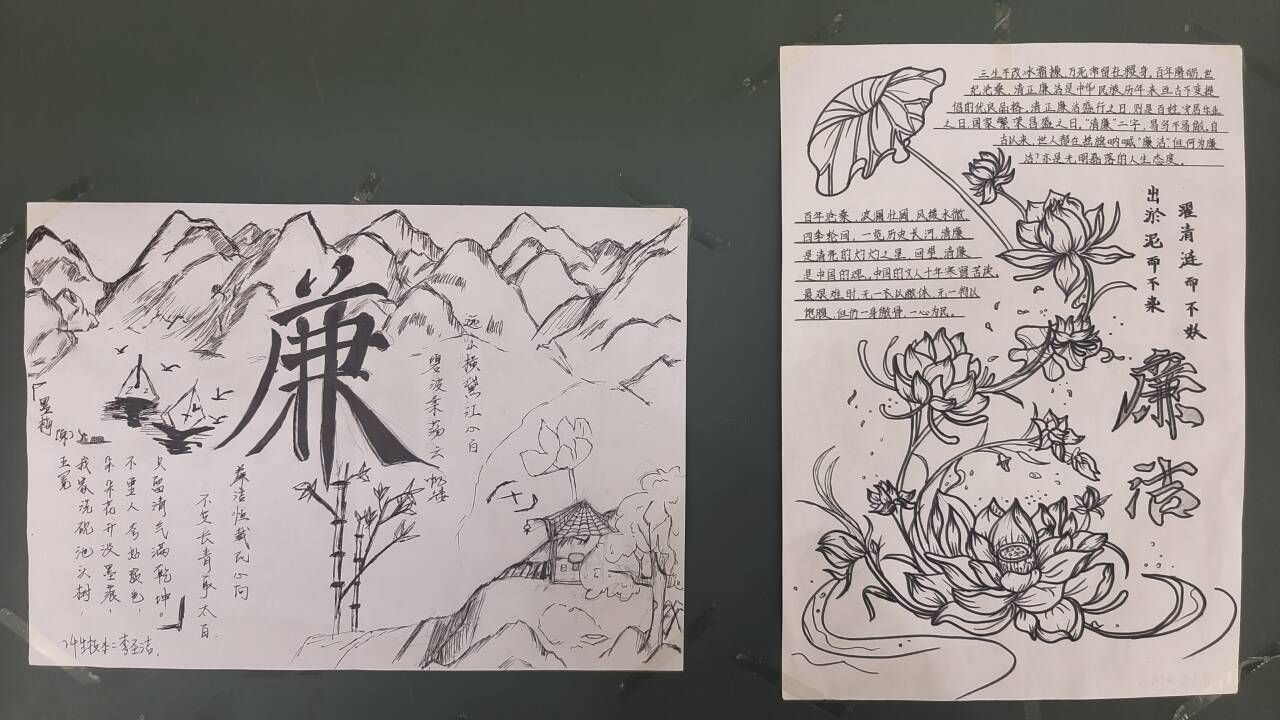 廉
远山横黛江心白
碧波柔荡云帆
廉洁恒载民心间
不变长青敬太白
「墨梅
王冕
我家洗砚池头树，
朵朵花开淡墨痕，
不要人夸好颜色，
只留清气满乾坤。」
三生不改冰霜操，万死常留社稷身。百年磨砺，世
纪沧桑，清正廉洁是中华民族历年来亘古不变提
倡的优良品格。清正廉洁盛行之日，则是百姓安居乐业
之日，国家繁荣昌盛之日。“清廉”二字，易写不易做。自
古以来，世人都在摇旗呐喊“廉洁”，但何为廉
洁？亦是光明磊落的人生态度。
百年沧桑，波澜壮阔，风拂水微
四季轮回，一览历史长河，清廉
是清亮的灼灼之星，回望，清廉
是中国的魂。中国的文人十年寒窗苦读，
最艰难时无一衣以蔽体，无一粥以
饱腹，但仍一身傲骨，一心为民。
濯清涟而不妖
出淤泥而不染
廉洁